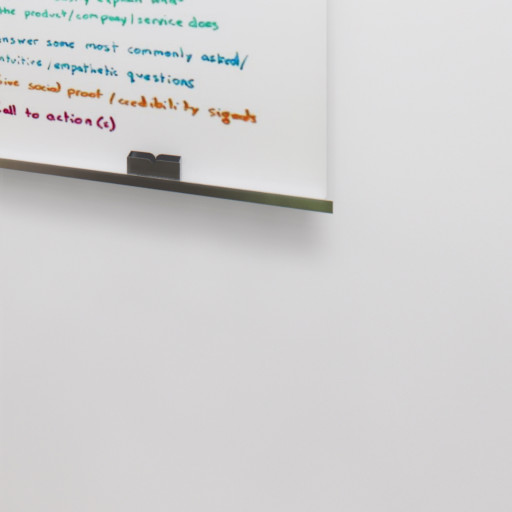 explain what
the product/company/service does
answer some most commonly asked/
intuitive/empathetic questions
give social proof/credibility signals
call to action(s)